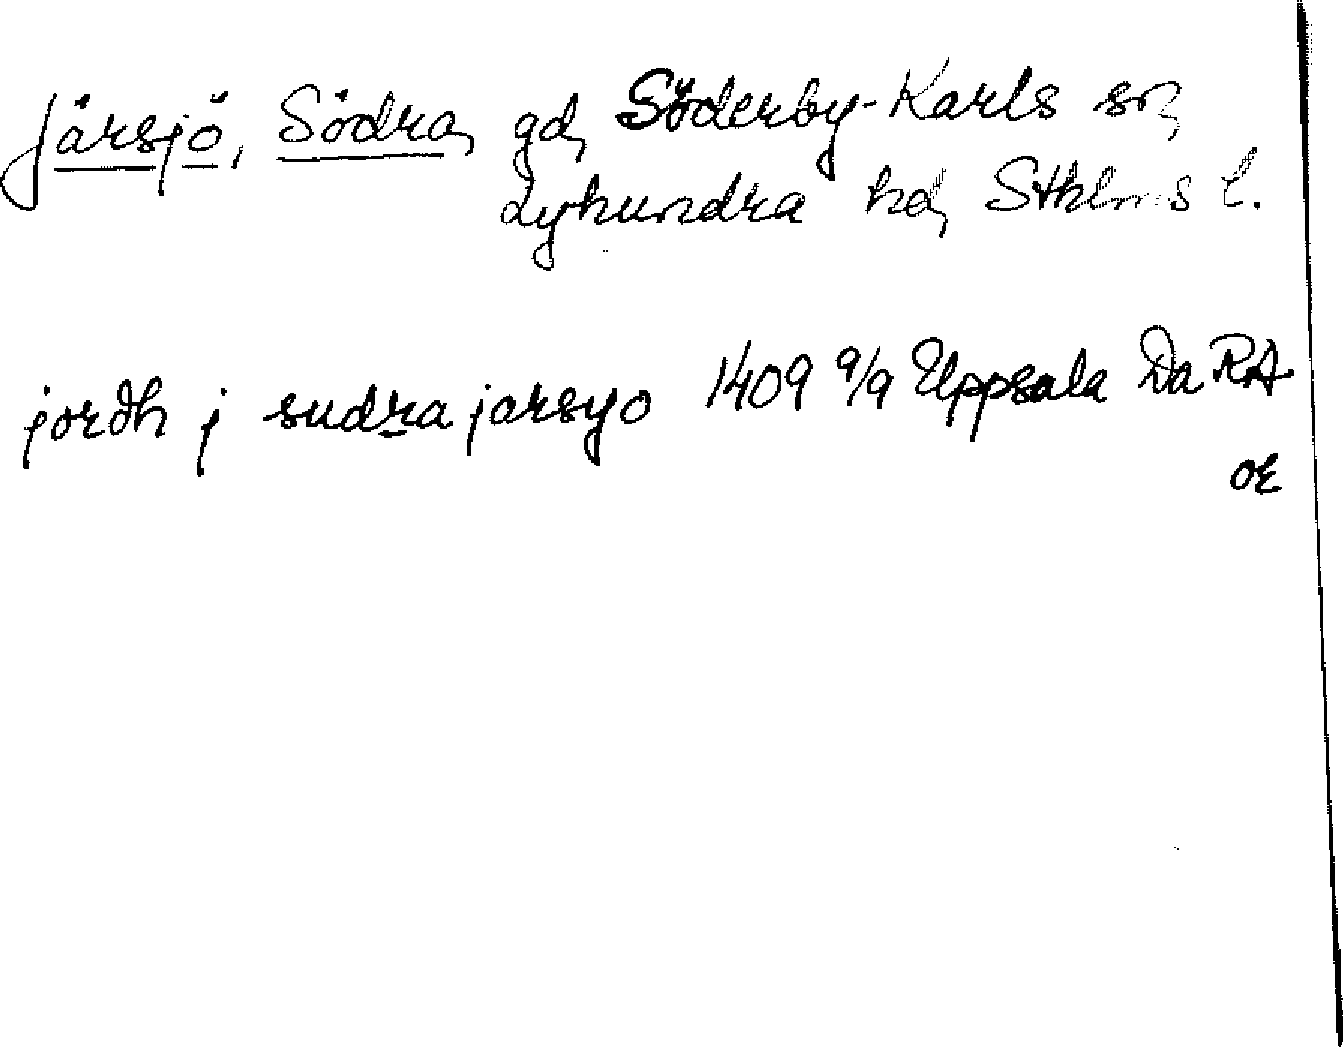 Järsjö, Södra, gd, Söderby-Karls sn,
Lyhundra hd, Sthlms l.
jordh j sudra jorsyo 1409 9/9 Uppsala Da RA
OE